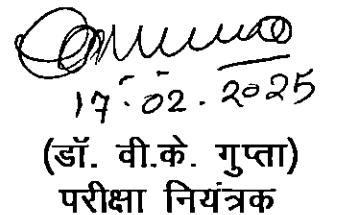 17.02.2025
(डॉ. वी.के. गुप्ता)
परीक्षा नियंत्रक